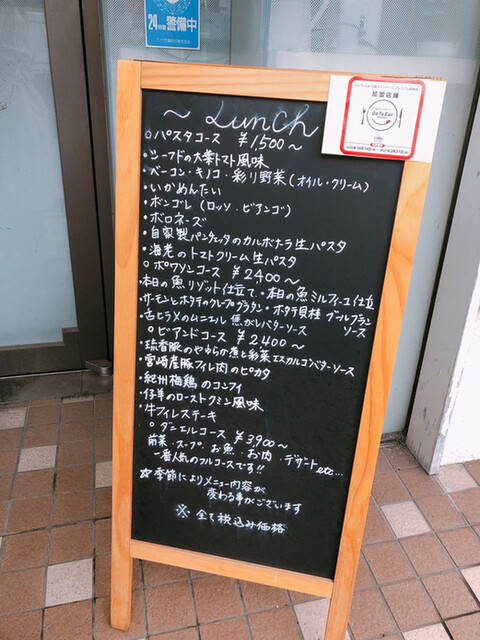 24時間 警備中
加盟店舗
Go To Eat
～ Lunch
○パスタコース ¥1,500～
・シーフードの大葉トマト風味
・ベーコン・キノコ・彩り野菜(オイル・クリーム)
・いかめんたい
・ボンゴレ(ロッソ・ビアンゴ)
・ボロネーズ
・自家製パンチェッタのカルボナーラ生パスタ
・海老のトマトクリーム生パスタ
○ポワソンコース ¥2,400～
・本日の魚リゾット仕立て・本日の魚ミルフィーユ仕立
・サーモンとホタテのクレープグラタン・ホタテ貝柱ブールブランソース
・舌ヒラメのムニエル焦がしバターソース
○ビアンドコース ¥2,400～
・琉香豚のやわらか煮と彩菜エスカルゴバターソース
・宮崎産豚フィレ肉のピカタ
・紀州梅鶏のコンフィ
・仔羊のローストクミン風味
・牛フィレステーキ
○ダニエルコース ¥3,900～
前菜・スープ・お魚・お肉・デザートetc...
一番人気のフルコースです!!
☆季節によりメニュー内容が
変わる事がございます
※ 全て税込み価格